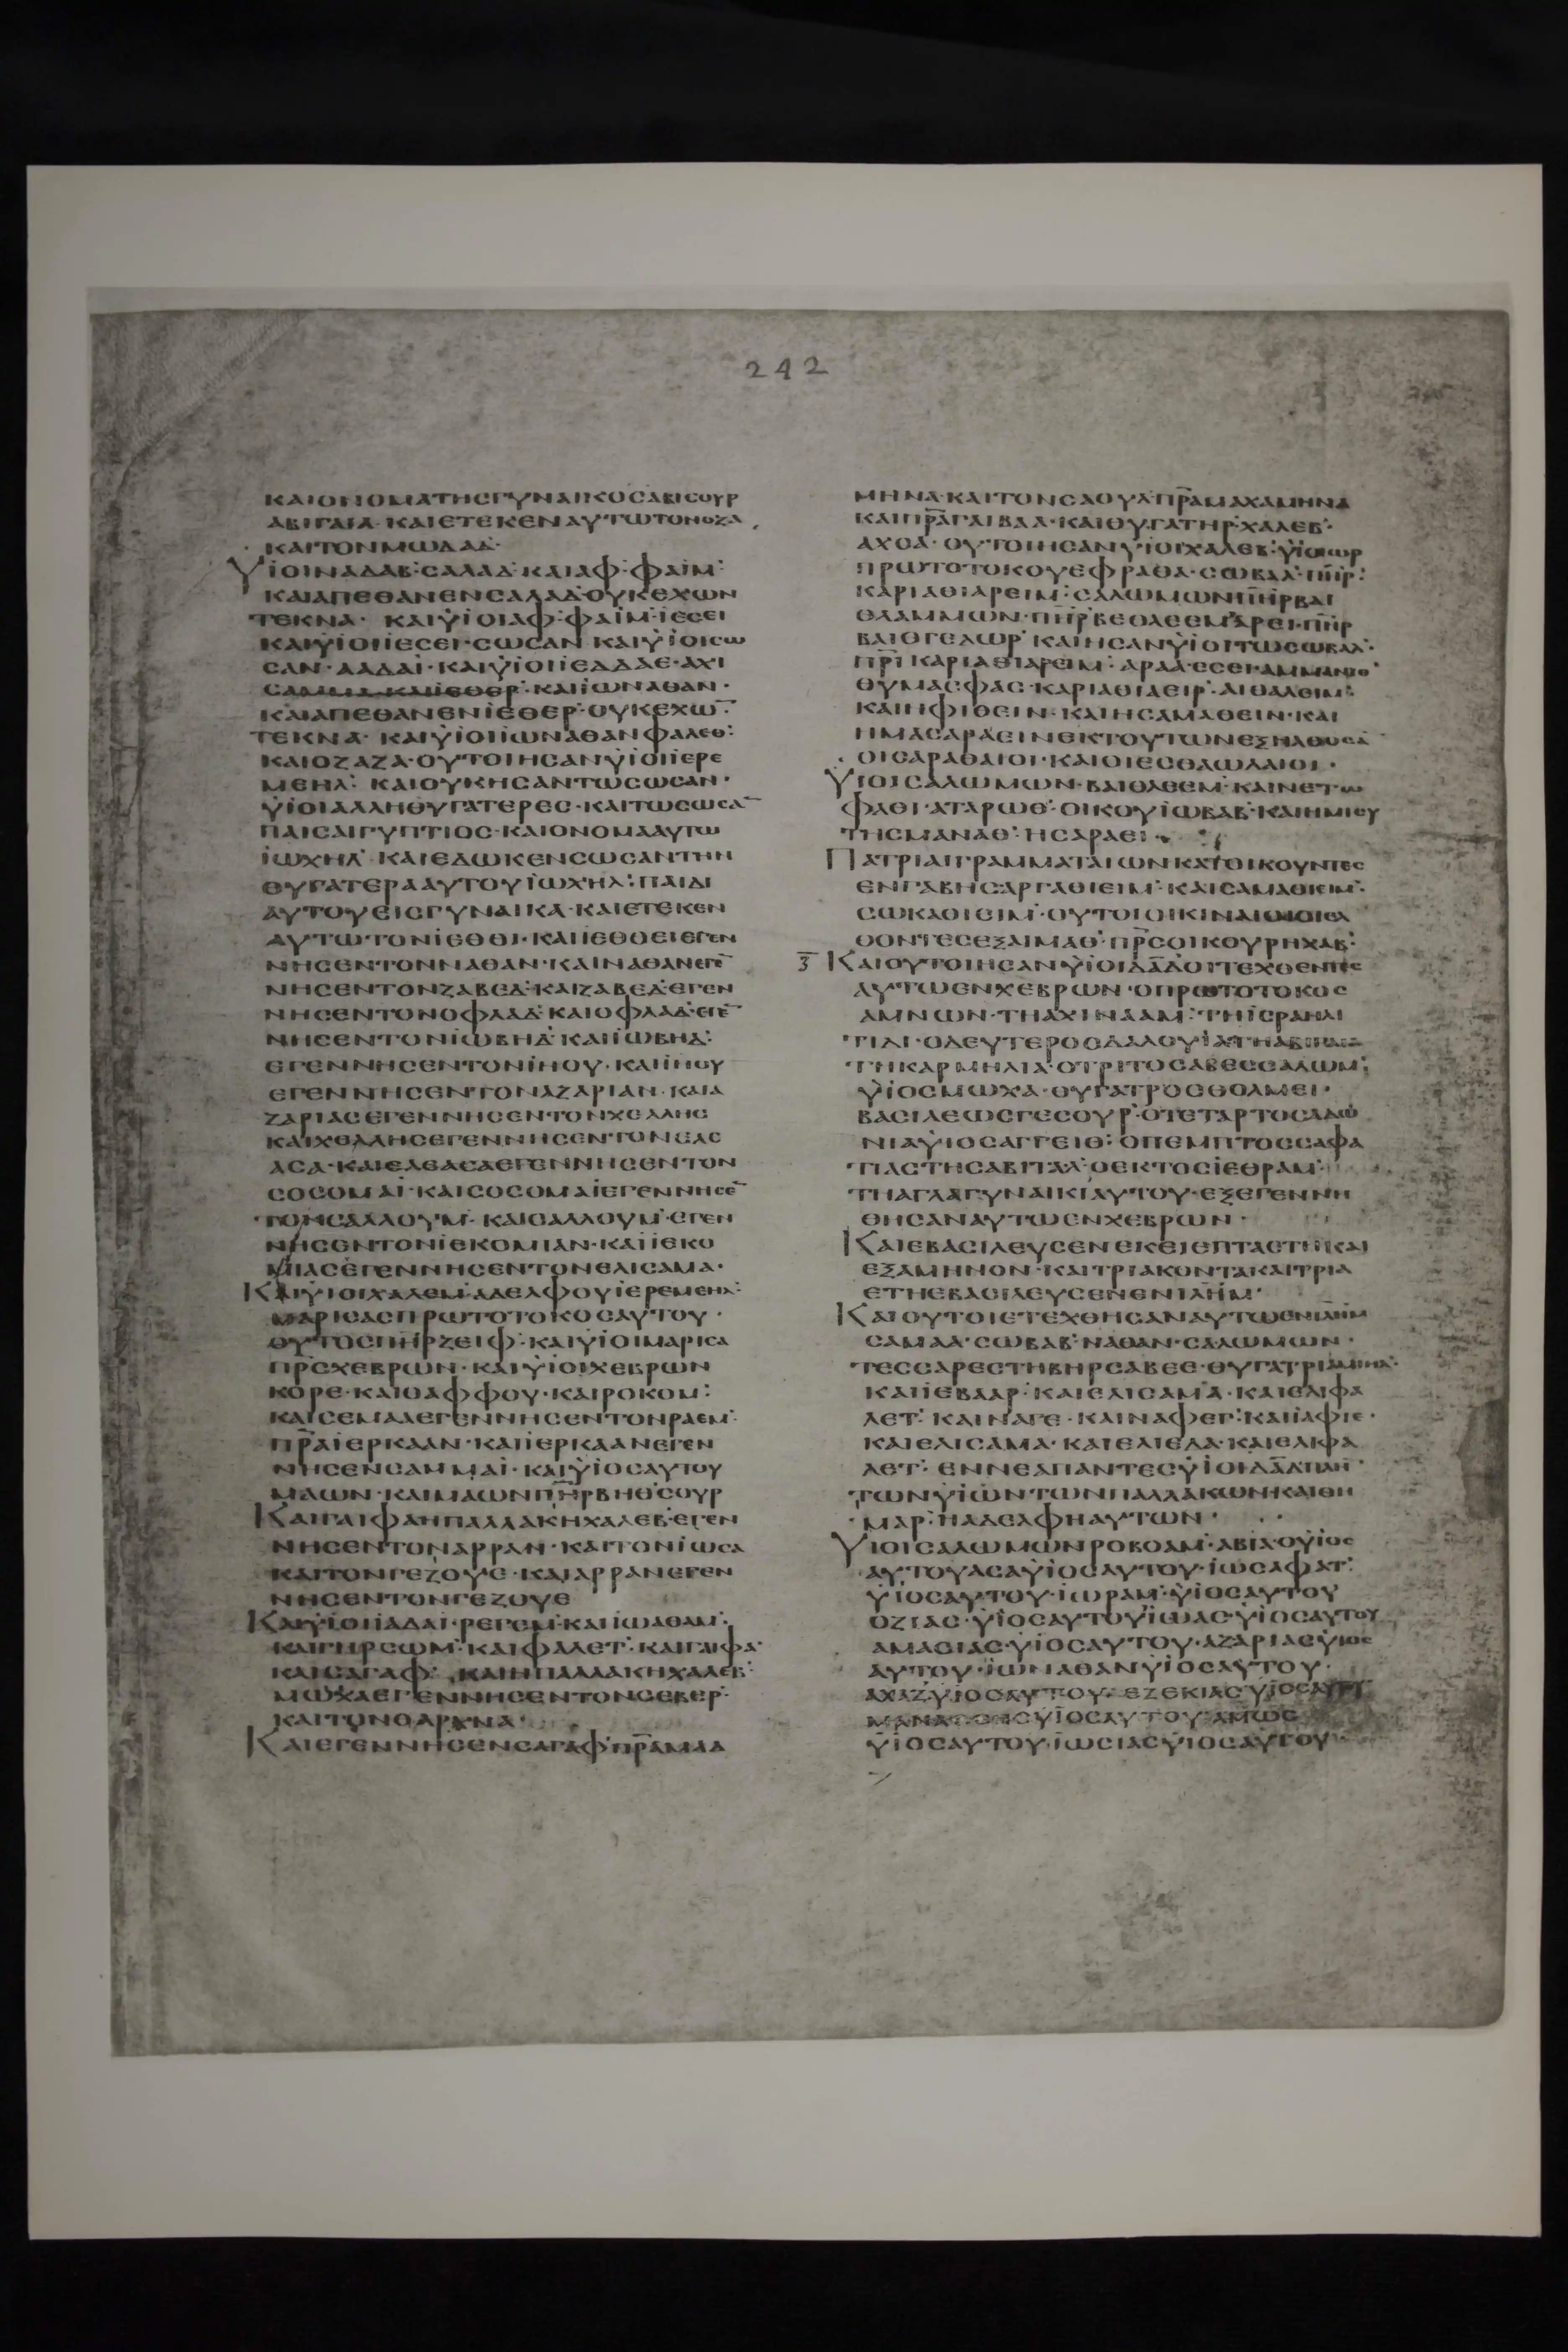 242
ΚΑΙΟΝΟΜΑΤΗСΓΥΝΑΙΚΟСΑΒΙСΟΥΡ
ΑΒΙΓΑΙΑ· ΚΑΙΕΤΕΚΕΝΑΥΤΩΤΟΝΟΖΑ
ΚΑΙΤΟΝΜΩΔΑΔ·
ΥΪΟΙΝΑΔΑΒ·СΑΛΑΔ·ΚΑΙΑΦ·ΦΑΪΜ·
ΚΑΙΑΠΕΘΑΝΕΝСΑΛΑΔ·ΟΥΚΕΧΩΝ
ΤΕΚΝΑ· ΚΑΙΥΪΟΙΑΦ·ΦΑΪΜ·ΪΕСΕΙ
ΚΑΙΥΪΟΙΪΕСΕΙ·СΩСΑΝ ΚΑΙΥΪΟΙСΩ
СΑΝ·ΑΔΔΑΪ·ΚΑΙΥΪΟΙΪΕΔΔΑΕ·ΑΧΙ
СΑΜΜΑ·ΚΑΙΪΕΘΕΡ·ΚΑΙΪΩΝΑΘΑΝ·
ΚΑΙΑΠΕΘΑΝΕΝΪΕΘΕΡ·ΟΥΚΕΧΩ̅
ΤΕΚΝΑ· ΚΑΙΥΪΟΙΪΩΝΑΘΑΝΦΑΛΕΘ·
ΚΑΙΟΖΑΖΑ·ΟΥΤΟΙΗСΑΝΥΪΟΙΪΕΡΕ
ΜΕΗΛ· ΚΑΙΟΥΚΗСΑΝΤΩСΩСΑΝ·
ΥΪΟΙΑΛΛΗΘΥΓΑΤΕΡΕС·ΚΑΙΤΩСΩСΑ̅
ΠΑΙСΑΙΓΥΠΤΙΟС·ΚΑΙΟΝΟΜΑΑΥΤΩ
ΪΩΧΗΛ· ΚΑΙΕΔΩΚΕΝСΩСΑΝΤΗΝ
ΘΥΓΑΤΕΡΑΑΥΤΟΥΪΩΧΗΛ·ΠΑΙΔΙ
ΑΥΤΟΥΕΙСΓΥΝΑΙΚΑ·ΚΑΙΕΤΕΚΕΝ
ΑΥΤΩ·ΤΟΝΪΕΘΘΙ·ΚΑΙΪΕΘΘΕΙΕΓΕΝ
ΝΗСΕΝΤΟΝΝΑΘΑΝ·ΚΑΙΝΑΘΑΝΕΓΕ̅
ΝΗСΕΝΤΟΝΖΑΒΕΔ·ΚΑΙΖΑΒΕΔ·ΕΓΕΝ
ΝΗСΕΝΤΟΝΟΦΛΑΔ·ΚΑΙΟΦΛΑΔ·ΕΓΕ̅
ΝΗСΕΝΤΟΝΪΩΒΗΔ·ΚΑΙΪΩΒΗΔ·
ΕΓΕΝΝΗСΕΝΤΟΝΪΗΟΥ·ΚΑΙΪΗΟΥ
ΕΓΕΝΝΗСΕΝΤΟΝΑΖΑΡΙΑΝ·ΚΑΙΑ
ΖΑΡΙΑСΕΓΕΝΝΗСΕΝΤΟΝΧΕΛΛΗС
ΚΑΙΧΕΛΛΗСΕΓΕΝΝΗСΕΝΤΟΝΕΛΕ
ΑСΑ·ΚΑΙΕΛΕΑСΑΕΓΕΝΝΗСΕΝΤΟΝ
СΟСΟΜΑΪ·ΚΑΙСΟСΟΜΑΪΕΓΕΝΝΗСΕ̅
ΤΟΝСΑΛΛΟΥΜ· ΚΑΙСΑΛΛΟΥΜ·ΕΓΕΝ
ΝΗСΕΝΤΟΝΪΕΚΟΜΙΑΝ·ΚΑΙΪΕΚΟ
ΜΙΑСΕΓΕΝΝΗСΕΝΤΟΝΕΛΙСΑΜΑ·
ΚΑΙΥΪΟΙΧΑΛΕΜ·ΑΔΕΛΦΟΥΪΕΡΕΜΕΗΛ·
ΜΑΡΙСΑСΠΡΩΤΟΤΟΚΟСΑΥΤΟΥ·
ΟΥΤΟСΠ̅Η̅Ρ̅ΖΕΙΦ·ΚΑΙΥΪΟΙΜΑΡΙСΑ
Π̅Ρ̅С̅ΧΕΒΡΩΝ·ΚΑΙΥΪΟΙΧΕΒΡΩΝ
ΚΟΡΕ·ΚΑΙΘΑΦΦΟΥ·ΚΑΙΡΟΚΟΜ·
ΚΑΙСΕΜΑΑΕΓΕΝΝΗСΕΝΤΟΝΡΑΕΜ·
Π̅Ρ̅Α̅ΪΕΡΚΑΑΝ·ΚΑΙΪΕΡΚΑΑΝΕΓΕΝ
ΝΗСΕΝСΑΜΜΑΪ·ΚΑΙΥΪΟСΑΥΤΟΥ
ΜΑΩΝ·ΚΑΙΜΑΩΝΠ̅Η̅Ρ̅ΒΗΘСΟΥΡ
ΚΑΙΓΑΙΦΑΗΠΑΛΛΑΚΗΧΑΛΕΒ·ΕΓΕΝ
ΝΗСΕΝΤΟΝΑΡΡΑΝ·ΚΑΙΤΟΝΪΩСΑ
ΚΑΙΤΟΝΓΕΖΟΥΕ·ΚΑΙΑΡΡΑΝΕΓΕΝ
ΝΗСΕΝΤΟΝΓΕΖΟΥΕ
ΚΑΙΥΪΟΙΪΑΔΑΪ·ΡΕΓΕΜ·ΚΑΙΪΩΑΘΑΜ·
ΚΑΙΓΗΡСΩΜ·ΚΑΙΦΑΛΕΤ·ΚΑΙΓΑΙΦΑ·
ΚΑΙСΑΓΑΦ· ΚΑΙΗΠΑΛΛΑΚΗΧΑΛΕΒ·
ΜΩΧΑΕΓΕΝΝΗСΕΝΤΟΝСΕΒΕΡ·
ΚΑΙΤΟΝΘΑΡΧΝΑ·
ΚΑΙΕΓΕΝΝΗСΕΝСΑΓΑΦ·Π̅Ρ̅Α̅ΜΑΔ
ΜΗΝΑ·ΚΑΙΤΟΝСΑΟΥΛΠ̅Ρ̅Α̅ΜΑΧΑΜΗΝΑ
ΚΑΙΠ̅Ρ̅Α̅ΓΑΙΒΑΑ·ΚΑΙΘΥΓΑΤΗΡΧΑΛΕΒ·
ΑΧСΑ· ΟΥΤΟΙΗСΑΝΥΪΟΙΧΑΛΕΒ·ΥΪΟΙΩΡ
ΠΡΩΤΟΤΟΚΟΥΕΦΡΑΘΑ·СΩΒΑΛ·Π̅Η̅Ρ̅·
ΚΑΡΙΑΘΙΑΡΕΙΜ·СΑΛΩΜΩΝΠ̅Η̅Ρ̅ΒΑΙ
ΘΛΑΜΜΩΝ·Π̅Η̅Ρ̅ΒΕΘΛΕΕΜ·ΑΡΕΙ·Π̅Η̅Ρ̅
ΒΑΙΘΓΕΔΩΡ· ΚΑΙΗСΑΝΥΪΟΙΤΩСΩΒΑΛ·
Π̅Ρ̅Ι̅ΚΑΡΙΑΘΙΑΡΕΙΜ·ΑΡΑΑ·ΕСΕΙ·ΑΜΜΑΝΙΘ·
ΘΥΜΑСΦΑС·ΚΑΡΙΑΘΙΑΕΙΡ·ΑΙΘΑΛΕΙΜ·
ΚΑΙΗΦΙΘΕΙΝ·ΚΑΙΗСΑΜΑΘΕΙΝ·ΚΑΙ
ΗΜΑСΑΡΑΕΙΝΕΚΤΟΥΤΩΝΕΞΗΛΘΟСΑ̅
ΟΙСΑΡΑΘΑΙΟΙ·ΚΑΙΟΙΕСΘΑΩΛΑΙΟΙ·
ΥΪΟΙСΑΛΩΜΩΝ·ΒΑΙΘΛΕΕΜ·ΚΑΙΝΕΤΩ
ΦΑΘΙ·ΑΤΑΡΩΘ·ΟΙΚΟΥΪΩΒΑΒ·ΚΑΙΗΜΙСΥ
ΤΗСΜΑΝΑΘ·ΗСΑΡΑΕΙ·
ΠΑΤΡΙΑΙΓΡΑΜΜΑΤΑΙΩΝΚΑΤΟΙΚΟΥΝΤΕС
ΕΝΓΑΒΗСΑΡΓΑΘΙΕΙΜ·ΚΑΙСΑΜΑΘΙΕΙΜ·
СΩΚΑΘΙΕΙΜ·ΟΥΤΟΙΟΙΚΙΝΑΙΟΙΟΙΕΛ
ΘΟΝΤΕСΕΞΑΙΜΑΘ·Π̅Ρ̅С̅ΟΙΚΟΥΡΗΧΑΒ·
Γ̅ ΚΑΙΟΥΤΟΙΗСΑΝΥΪΟΙΔ̅Α̅Δ̅ΟΙΤΕΧΘΕΝΤΕС
ΑΥΤΩΕΝΧΕΒΡΩΝ·ΟΠΡΩΤΟΤΟΚΟС
ΑΜΝΩΝ·ΤΗΑΧΙΝΑΑΜ·ΤΗΪСΡΑΗΛΙ
ΤΙΔΙ·ΟΔΕΥΤΕΡΟСΔΑΛΟΥΪΑΤΗΑΒΙΓΑΙΑ
ΤΗΚΑΡΜΗΛΙΑ·ΟΤΡΙΤΟСΑΒΕССΑΛΩΜ·
ΥΪΟСΜΩΧΑ·ΘΥΓΑΤΡΟСΘΟΛΜΕΙ·
ΒΑСΙΛΕΩСΓΕСΟΥΡ·ΟΤΕΤΑΡΤΟСΑΔΩ
ΝΙΑΥΪΟСΑΓΓΕΙΘ·ΟΠΕΜΠΤΟССΑΦΑ
ΤΙΑСΤΗСΑΒΙΤΑΛ·ΟΕΚΤΟСΪΕΘΡΑΜ·
ΤΗΑΓΛΑΓΥΝΑΙΚΙΑΥΤΟΥ·ΕΞΕΓΕΝΝΗ
ΘΗСΑΝΑΥΤΩΕΝΧΕΒΡΩΝ·
ΚΑΙΕΒΑСΙΛΕΥСΕΝΕΚΕΙΕΠΤΑΕΤΗΚΑΙ
ΕΞΑΜΗΝΟΝ·ΚΑΙΤΡΙΑΚΟΝΤΑΚΑΙΤΡΙΑ
ΕΤΗΕΒΑСΙΛΕΥСΕΝΕΝΙ̅Λ̅Η̅Μ̅·
ΚΑΙΟΥΤΟΙΕΤΕΧΘΗСΑΝΑΥΤΩΕΝΙ̅Λ̅Η̅Μ̅
СΑΜΑΑ·СΩΒΑΒ·ΝΑΘΑΝ·СΑΛΩΜΩΝ·
ΤΕССΑΡΕСΤΗΒΗΡСΑΒΕΕ·ΘΥΓΑΤΡΙΑΜΙΗΛ·
ΚΑΙΪΕΒΑΑΡ·ΚΑΙΕΛΙСΑΜΑ·ΚΑΙΕΛΙΦΑ
ΛΕΤ·ΚΑΙΝΑΓΕ·ΚΑΙΝΑΦΕΓ·ΚΑΙΪΑΦΙΕ·
ΚΑΙΕΛΙСΑΜΑ·ΚΑΙΕΛΙΕΔΑ·ΚΑΙΕΛΙΦΑ
ΛΕΤ·ΕΝΝΕΑΠΑΝΤΕСΥΪΟΙΔ̅Α̅Δ̅ΠΛΗ·
ΤΩΝΥΪΩΝΤΩΝΠΑΛΛΑΚΩΝΚΑΙΘΗ
ΜΑΡ·ΗΑΔΕΛΦΗΑΥΤΩΝ·
ΥΪΟΙСΑΛΩΜΩΝΡΟΒΟΑΜ·ΑΒΙΑ·ΟΥΪΟС
ΑΥΤΟΥΑСΑΥΪΟСΑΥΤΟΥ·ΪΩСΑΦΑΤ·
ΥΪΟСΑΥΤΟΥ·ΪΩΡΑΜ·ΥΪΟСΑΥΤΟΥ
ΟΖΙΑС·ΥΪΟСΑΥΤΟΥΪΩΑС·ΥΪΟСΑΥΤΟΥ
ΑΜΑСΙΑС·ΥΪΟСΑΥΤΟΥ·ΑΖΑΡΙΑСΥΪΟС
ΑΥΤΟΥ·ΪΩΝΑΘΑΝΥΪΟСΑΥΤΟΥ·
ΑΧΑΖΥΪΟСΑΥΤΟΥ·ΕΖΕΚΙΑСΥΪΟСΑΥΤΟΥ
ΜΑΝΑССΗСΥΪΟСΑΥΤΟΥ·ΑΜΩС
ΥΪΟСΑΥΤΟΥ·ΪΩСΙΑСΥΪΟСΑΥΤΟΥ